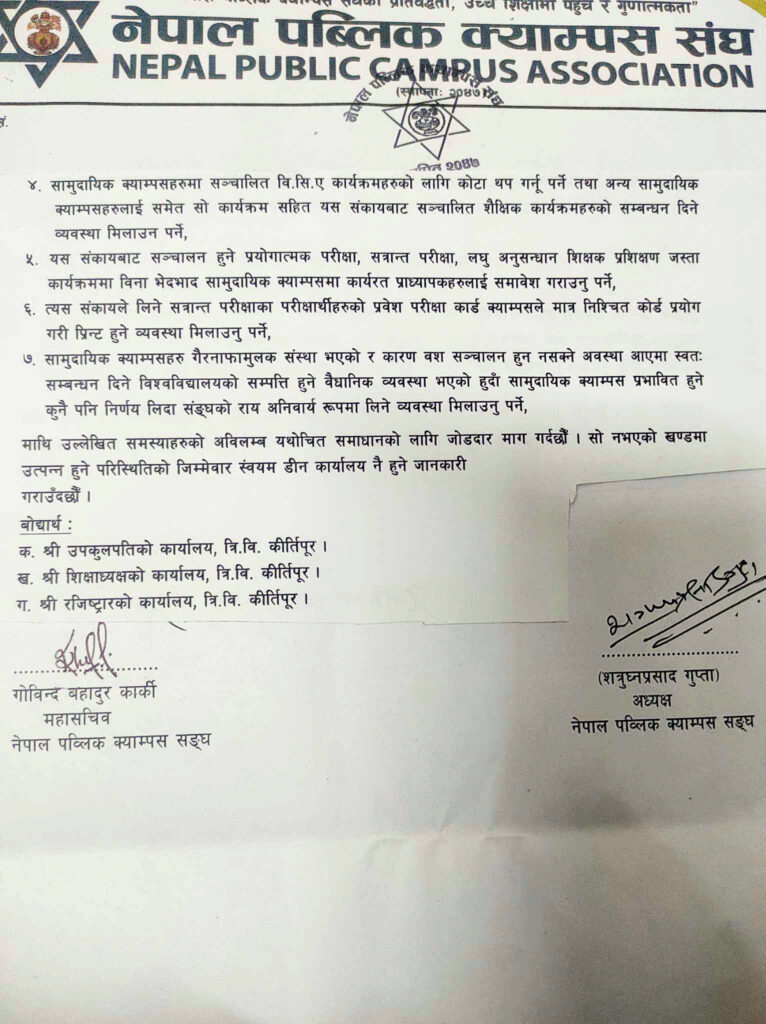 पब्लिक क्याम्पस संघको प्रतिवद्धता, उच्च शिक्षामा पहुँच र गुणात्मकता"
नेपाल पब्लिक क्याम्पस संघ
NEPAL PUBLIC CAMPUS ASSOCIATION
(स्थापितः २०४७)
नेपाल पब्लिक क्याम्पस संघ
२०४७
सं.
४. सामुदायिक क्याम्पसहरुमा सञ्चालित वि.सि.ए कार्यक्रमहरुको लागि कोटा थप गर्नू पर्ने तथा अन्य सामुदायिक
क्याम्पसहरुलाई समेत सो कार्यक्रम सहित यस संकायबाट सञ्चालित शैक्षिक कार्यक्रमहरुको सम्बन्धन दिने
व्यवस्था मिलाउन पर्ने,
५. यस संकायबाट सञ्चालन हुने प्रयोगात्मक परीक्षा, सत्रान्त परीक्षा, लघु अनुसन्धान शिक्षक प्रशिक्षण जस्ता
कार्यक्रममा विना भेदभाद सामुदायिक क्याम्पसमा कार्यरत प्राध्यापकहरुलाई समावेश गराउनु पर्ने,
६. त्यस संकायले लिने सत्रान्त परीक्षाका परीक्षार्थीहरुको प्रवेश परीक्षा कार्ड क्याम्पसले मात्र निश्चित कोर्ड प्रयोग
गरी प्रिन्ट हुने व्यवस्था मिलाउनु पर्ने,
७. सामुदायिक क्याम्पसहरु गैरनाफामुलक संस्था भएको र कारण वश सञ्चालन हुन नसक्ने अवस्था आएमा स्वतः
सम्बन्धन दिने विश्वविद्यालयको सम्पत्ति हुने वैधानिक व्यवस्था भएको हुदाँ सामुदायिक क्याम्पस प्रभावित हुने
कुनै पनि निर्णय लिदा संङ्घको राय अनिवार्य रूपमा लिने व्यवस्था मिलाउनु पर्ने,
माथि उल्लेखित समस्याहरुको अविलम्ब यथोचित समाधानको लागि जोडदार माग गर्दछौं । सो नभएको खण्डमा
उत्पन्न हुने परिस्थितिको जिम्मेवार स्वंयम डीन कार्यालय नै हुने जानकारी
गराउँदछौं ।
बोद्यार्थ :
क. श्री उपकुलपतिको कार्यालय, त्रि.वि. कीर्तिपूर ।
ख. श्री शिक्षाध्यक्षको कार्यालय, त्रि.वि. कीर्तिपूर ।
ग. श्री रजिष्ट्रारको कार्यालय, त्रि.वि. कीर्तिपूर ।
गोविन्द बहादुर कार्की
महासचिव
नेपाल पव्लिक क्याम्पस सङ्घ
(शत्रुघ्नप्रसाद गुप्ता)
अध्यक्ष
नेपाल पव्लिक क्याम्पस सङ्घ